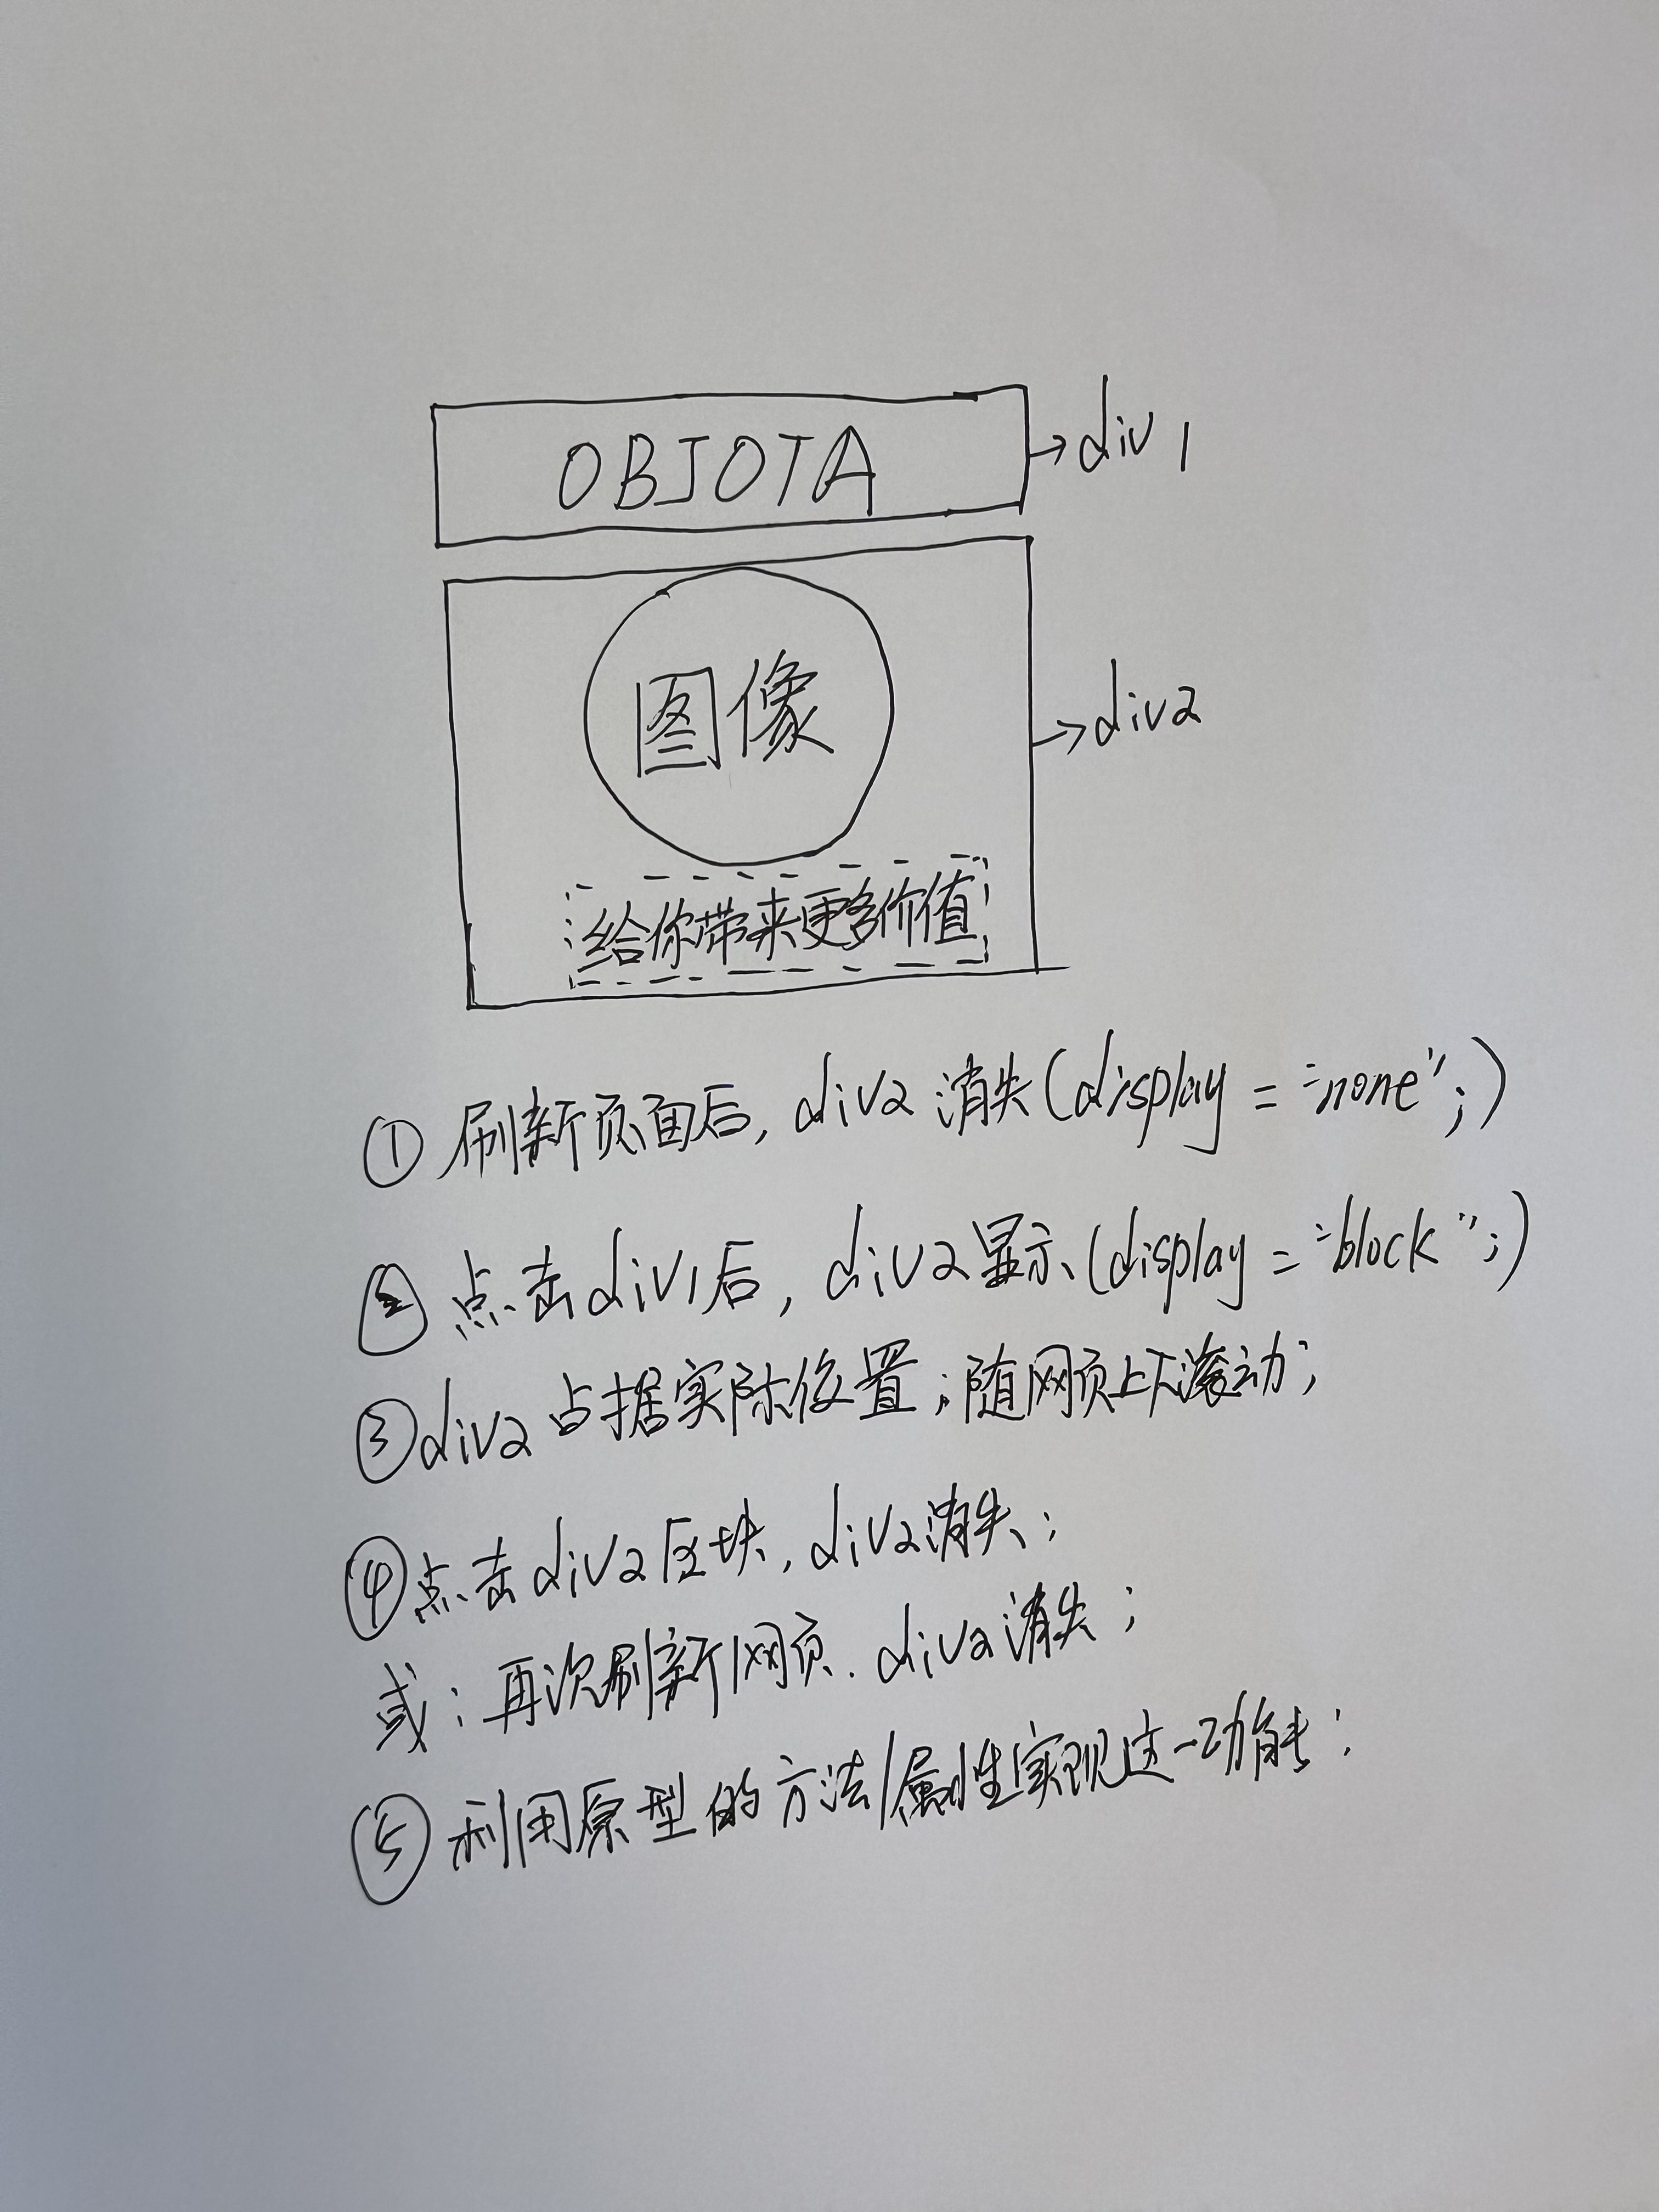 OBJOTA
→div1
图像
→div2
给你带来更多价值
① 刷新页面后, div2 消失(display = "none";)
② 点击div1后, div2显示(display = "block";)
③div2 占据实际位置;随网页上下滚动;
④点击div2区块, div2消失;
或:再次刷新网页.div2消失;
⑤ 利用原型的方法/属性实现这一功能;